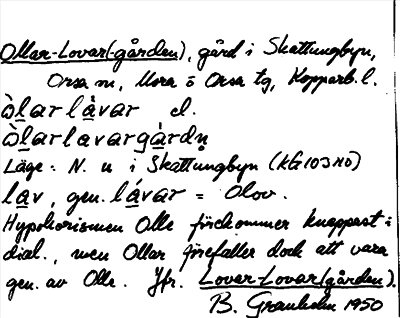 Ollar-Lovar(-gården), gård i Skattungbyn,
Orsa sn, Mora o Orsa tg, Kopparb. l.
òlarlàvar el.
òlarlavargàrdn̥
Läge: N. u i Skattungbyn (kG103110)
lav, gen. lávar = Olov.
Hypokorismen Olle förekommer knappast i
dial., men Ollar förefaller dock att vara
gen. av Olle. Jfr. Lovar-Lovar(gården).
B. Granholm 1950